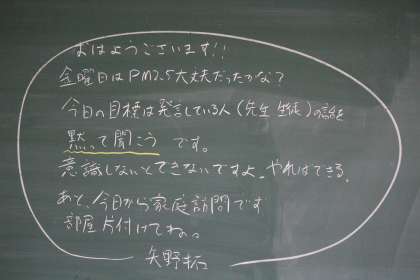 おはようございます!!
金曜日はPM2.5大丈夫だったかな?
今日の目標は発言している人(先生 生徒)の話を
黙って聞こう です。
意識しないとできないですよ。やればできる。
あと、今日から家庭訪問です
部屋片付けてね。
矢野拓